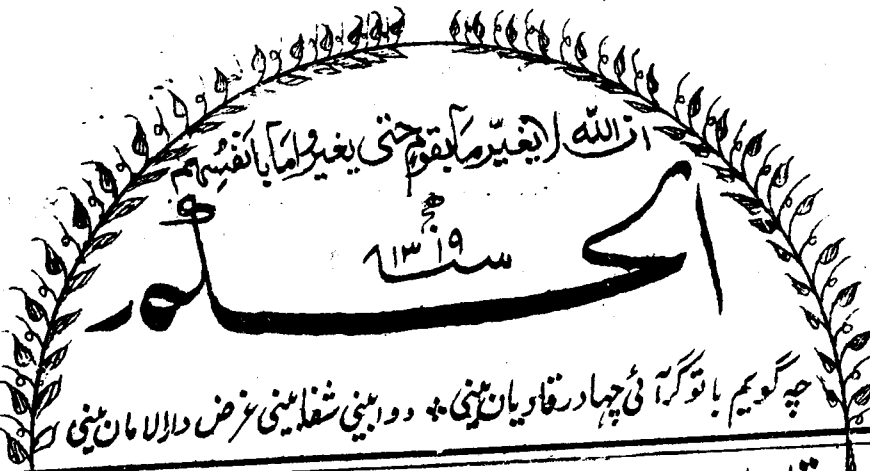 ان الله لا يغيّر ما بقوم حتى يغيروا ما بانفسهم
الحكم
سنة ١٣١٩ هج
چه گویم با تو گر آئی چہا در قادیان بینی ❖ دوا بینی شفا بینی غرض دارالامان بینی